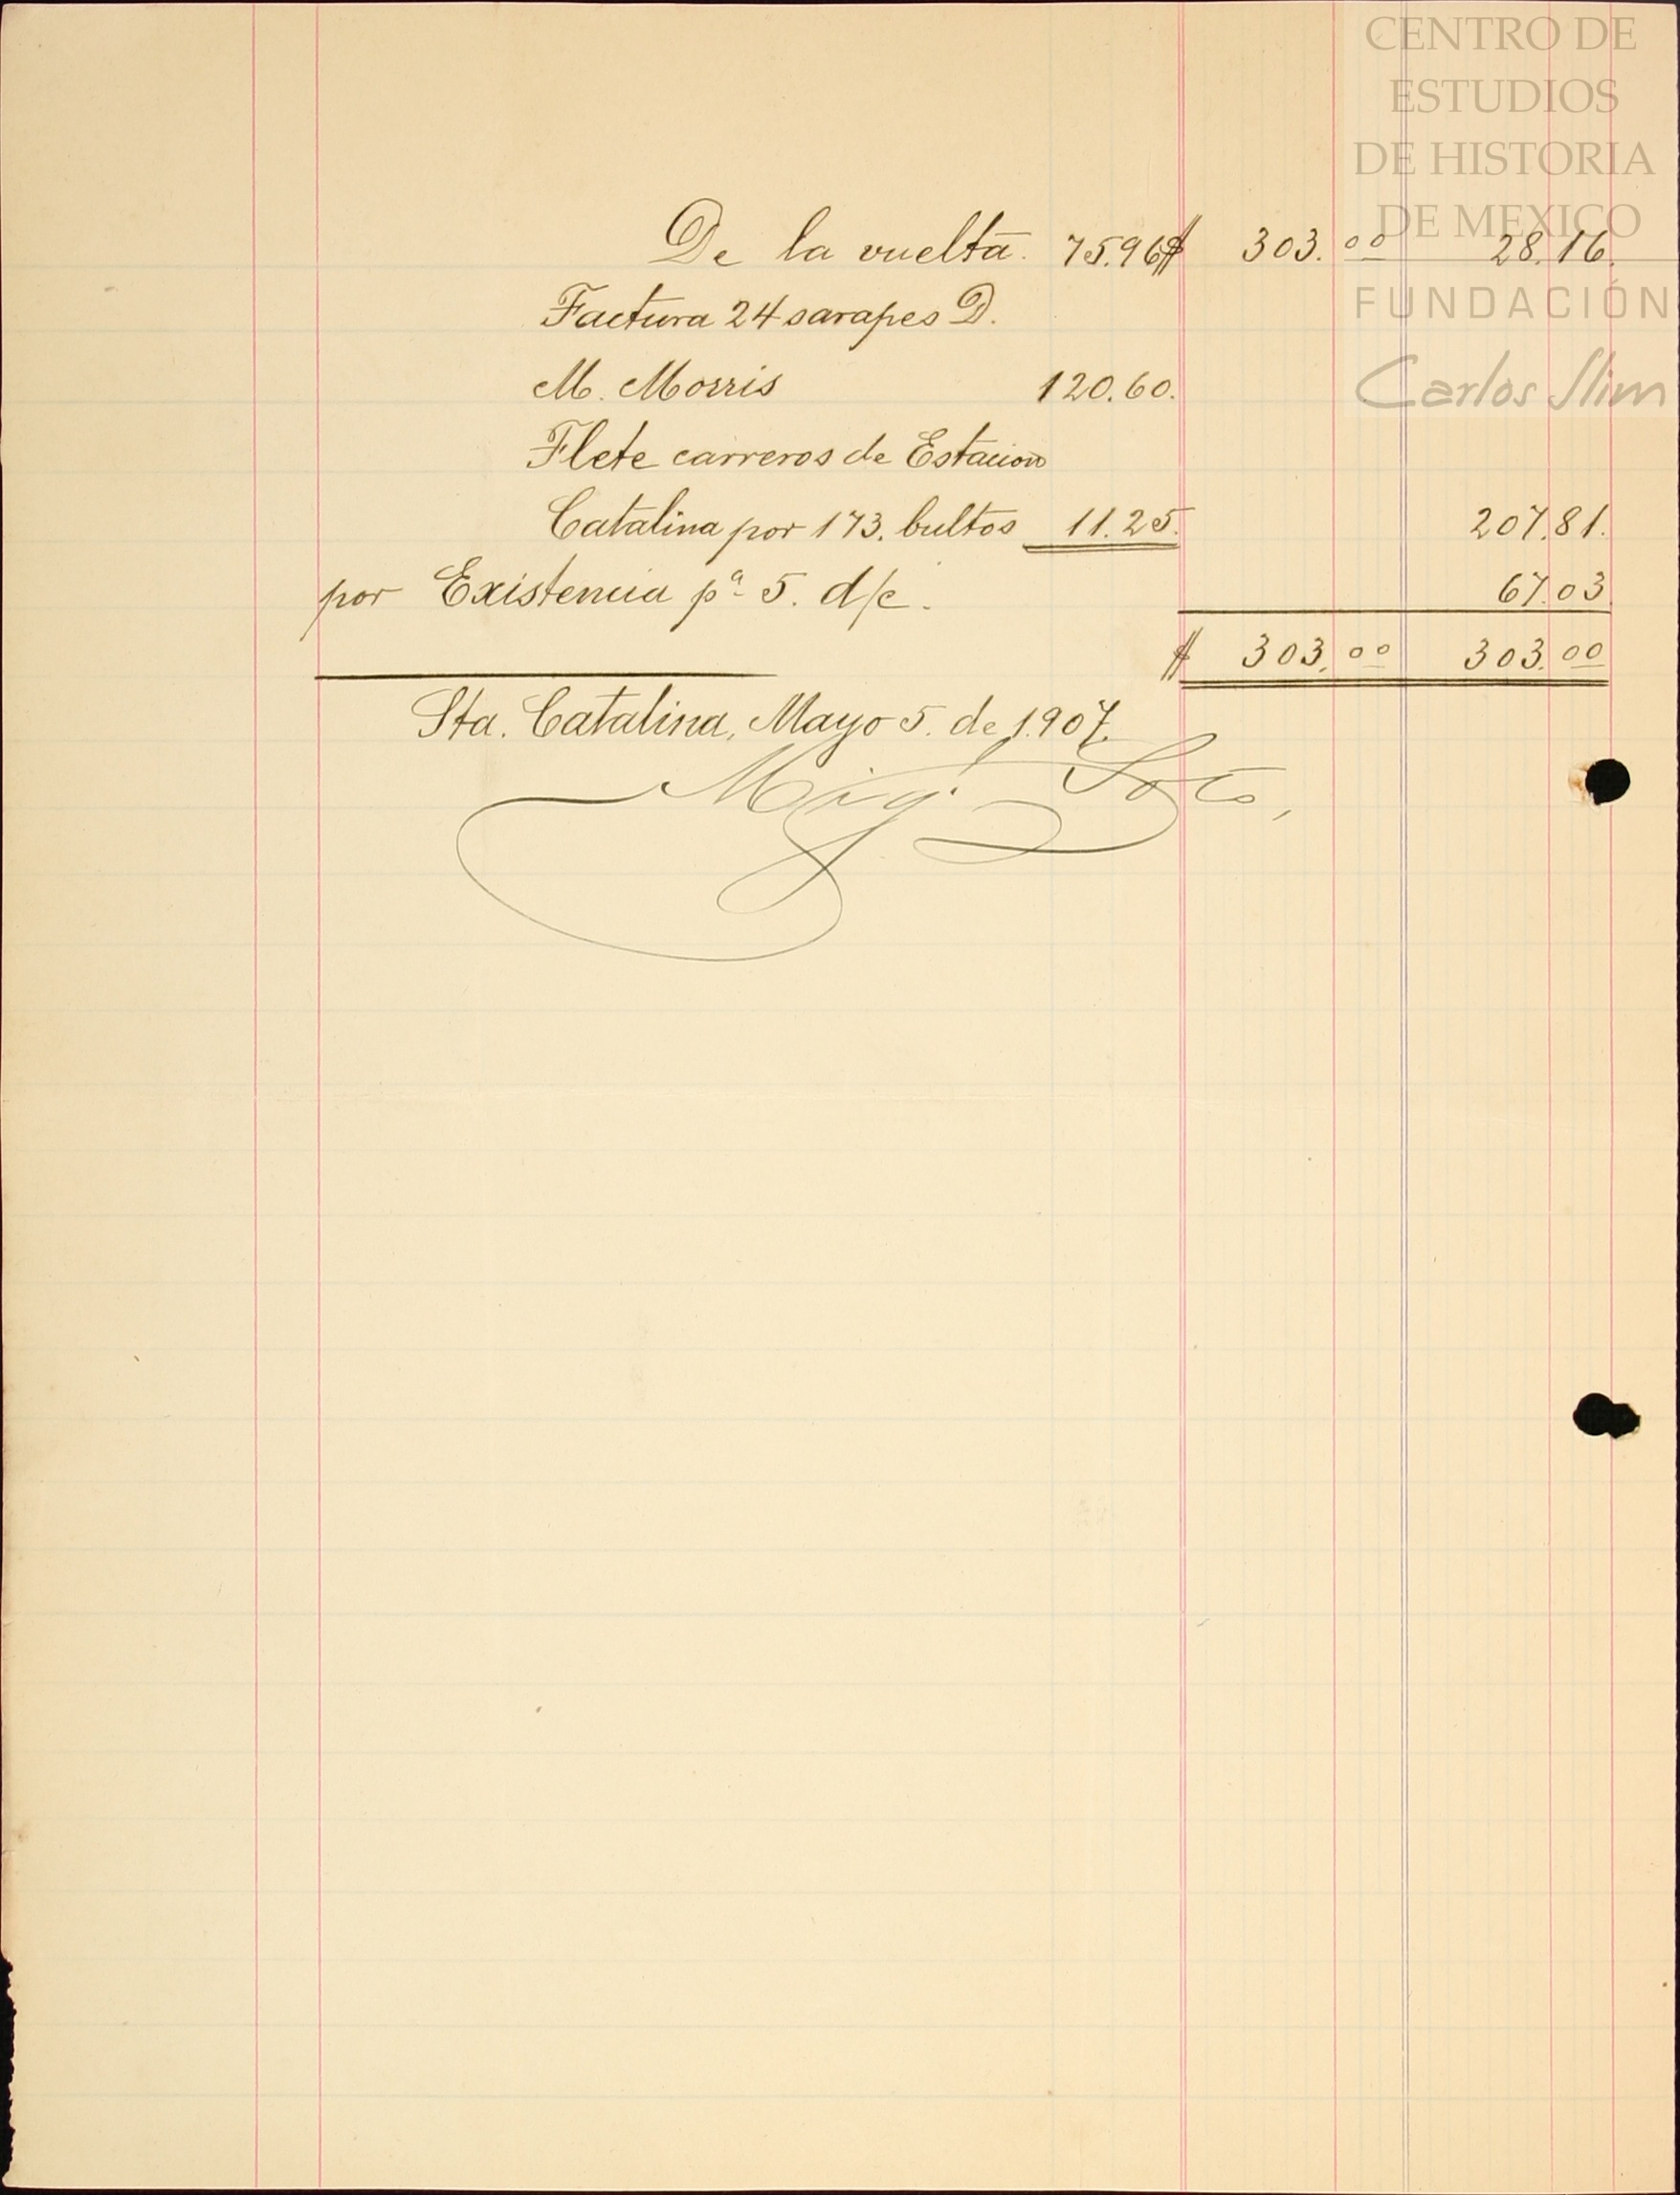 CENTRO DE
ESTUDIOS
DE HISTORIA
DE MEXICO
FUNDACIÓN
Carlos Slim
De la vuelta. 75.96 $ 303.00 28.16.
Factura 24 sarapes D.
M. Morris 120.60.
Flete carreros de Estacion
Catalina por 173. bultos 11.25. 207.81.
por Existencia pª 5. d/c. 67.03
$ 303.00 303.00
Sta. Catalina, Mayo 5. de 1.907.
Mig. Soto,